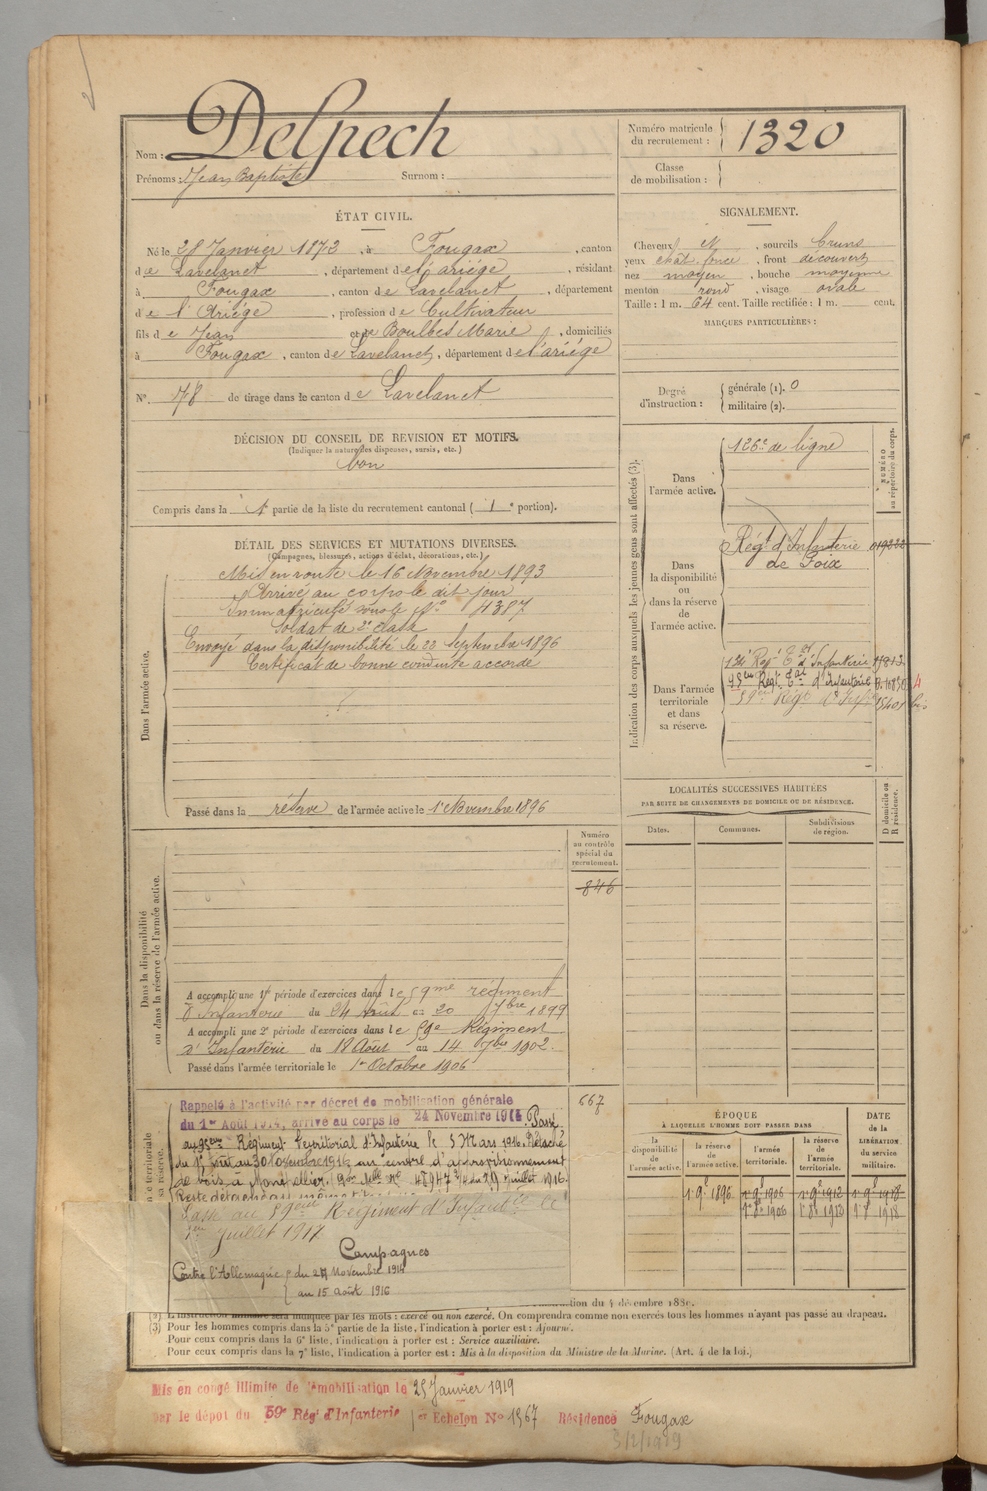 Nom : Delpech
Prénoms : Jean Baptiste Surnom :
Numéro matricule du recrutement : 1320
Classe de mobilisation :
ÉTAT CIVIL.
Né le 28 Janvier 1873, à Fougax, canton
de Lavelanet, département de l'ariège, résidant
à Fougax, canton de Lavelanet, département
de l'Ariège, profession de Cultivateur
fils de Jean et de Boulbes Marie, domiciliés
à Fougax, canton de Lavelanet, département de l'ariège
N° 78 de tirage dans le canton de Lavelanet
SIGNALEMENT.
Cheveux N, sourcils bruns
yeux chât. foncé, front découvert
nez moyen, bouche moyenne
menton rond, visage ovale
Taille : 1 m. 64 cent. Taille rectifiée : 1 m. cent.
MARQUES PARTICULIÈRES :
Degré d'instruction : générale (1). 0
militaire (2).
DÉCISION DU CONSEIL DE REVISION ET MOTIFS.
(Indiquer la nature des dispenses, sursis, etc.)
bon
Compris dans la 1e partie de la liste du recrutement cantonal ( 1e portion).
DÉTAIL DES SERVICES ET MUTATIONS DIVERSES.
(Campagnes, blessures, actions d'éclat, décorations, etc.)
Dans l'armée active.
Mis en route le 16 Novembre 1893
Arrivé au corps le dit jour
Immatriculé sous le No 4387
Soldat de 2e classe
Envoyé dans la disponibilité le 22 Septembre 1896
Certificat de bonne conduite accordé
Passé dans la réserve de l'armée active le 1er Novembre 1896
Indication des corps auxquels les jeunes gens sont affectés (3).
NUMÉRO au répertoire du corps.
Dans l'armée active.
126e de ligne
Dans la disponibilité ou dans la réserve de l'armée active.
Régt d'Infanterie
de Foix
Dans l'armée territoriale et dans sa réserve.
Régt Tal d'Infanterie
95me Régt Tal d'Infanterie
59me Régt
LOCALITÉS SUCCESSIVES HABITÉES
PAR SUITE DE CHANGEMENTS DE DOMICILE OU DE RÉSIDENCE.
Dates. Communes. Subdivisions de région.
D domicile ou R résidence.
Numéro au contrôle spécial du recrutement.
846
Dans la disponibilité ou dans la réserve de l'armée active.
A accompli une 1re période d'exercices dans le 59me régiment
d'Infanterie du 24 Août au 20 7bre 1899
A accompli une 2e période d'exercices dans le 59e Régiment
d'Infanterie du 18 Août au 14 7bre 1902.
Passé dans l'armée territoriale le 1er Octobre 1906
667
Rappelé à l'activité par décret de mobilisation générale
du 1er Août 1914, arrivé au corps le 24 Novembre 1914. Passé
au 95ème Régiment Territorial d'Infanterie le 5 Mars 1916. Détaché
au centre d'approvisionnement
de bois, à Montpellier.
Passé au 59ème Régiment d'Infanterie le
1er Juillet 1917
Campagnes
Contre l'Allemagne du 24 Novembre 1914
au 15 août 1916
ÉPOQUE
À LAQUELLE L'HOMME DOIT PASSER DANS
la disponibilité de l'armée active. la réserve de l'armée active. l'armée territoriale. la réserve de l'armée territoriale.
DATE de la LIBÉRATION du service militaire.
1r 9e 1896 1r 9e 1906 1r 9e 1912 1r 9e 1918
1r 8e 1906 1r 8e 1912 1r 8e 1918
(3) Pour les hommes compris dans la 5e partie de la liste, l'indication à porter est : Ajourné.
Pour ceux compris dans la 6e liste, l'indication à porter est : Service auxiliaire.
Pour ceux compris dans la 7e liste, l'indication à porter est : Mis à la disposition du Ministre de la Marine. (Art. 4 de la loi.)
Mis en congé illimité de démobilisation le 25 Janvier 1919
par le dépôt du 59e Régt d'Infanterie 1er Echelon No 1567 Résidence Fougax
3/2/1919